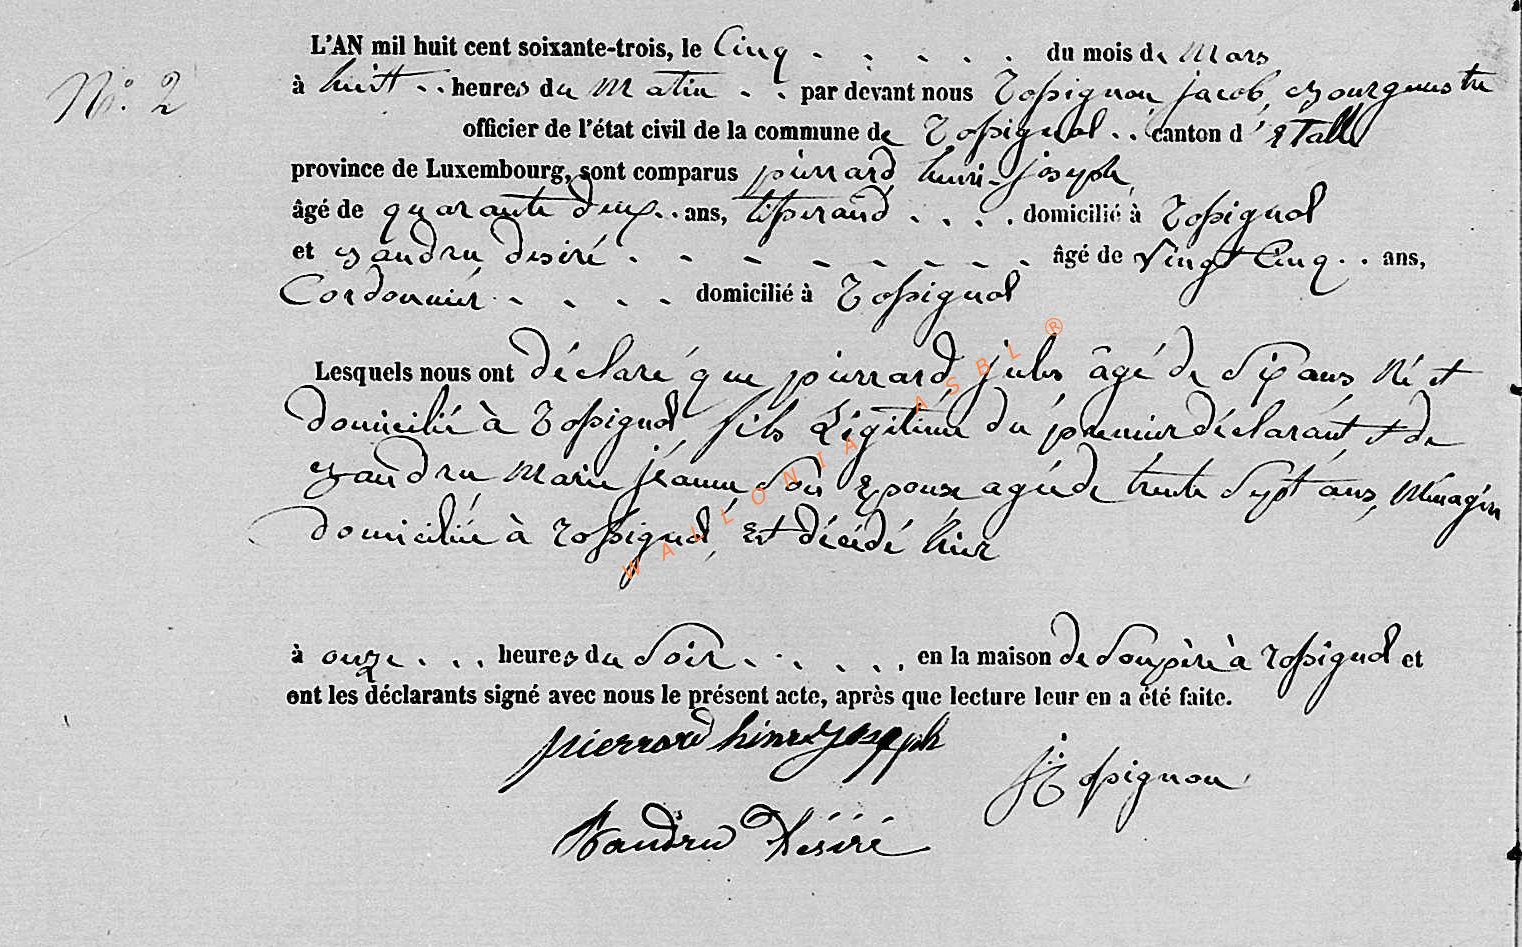 L'AN mil huit cent soixante-trois, le Cinq . . . . . du mois de Mars
N.° 2
à huitt . . heures du Matin . . par devant nous Rossignon jacob, Bourgmestre
officier de l'état civil de la commune de Rossignol . . canton d' Etalle
province de Luxembourg, sont comparus pierrard henri-joseph
âgé de quarante deux . . ans, tisserand . . . . domicilié à Rossignol
et Baudru desiré . . . . . . . . âgé de Vingt Cinq . . ans,
Cordonnier . . . . domicilié à Rossignol
Lesquels nous ont déclaré que pierrard jules âgé de Six ans Né et
domicilié à Rossignol, fils Légitime du premier déclarant et de
Baudru Marie jeanne Son Epouse agée de trente Sept ans, Ménagère
domiciliée à Rossignol, Est décédé hier
à onze . . . heures du Soir . . . . . . en la maison de Son père à Rossignol et
ont les déclarants signé avec nous le présent acte, après que lecture leur en a été faite.
pierrard hinri joseph
J Rossignon
Baudru Désiré
WALLONIA ASBL ®